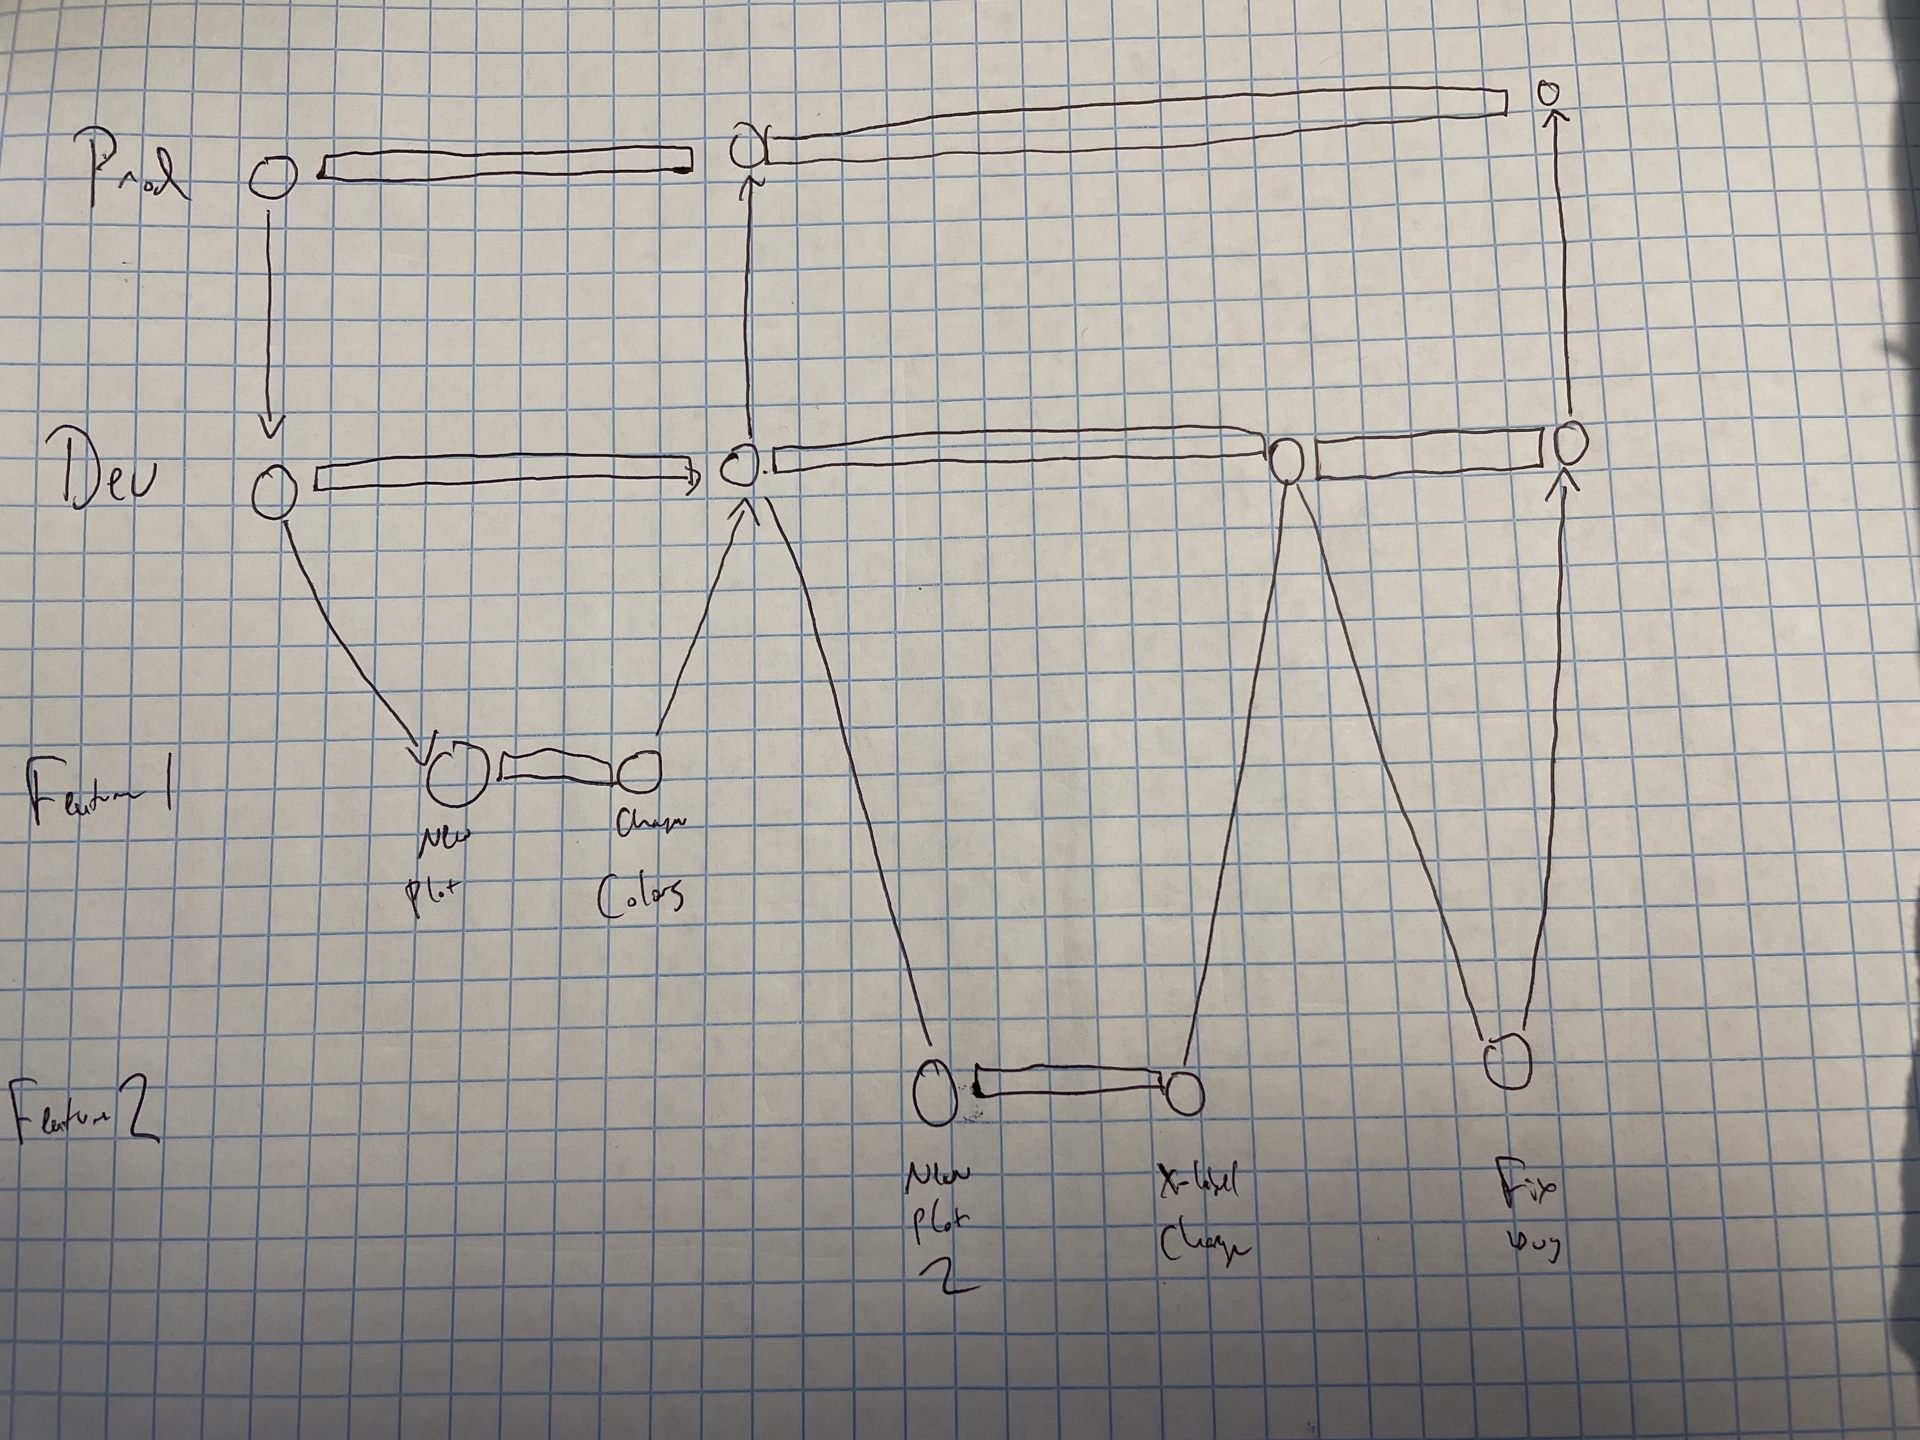 Prod
Dev
Feature 1
New
Plot
Change
Colors
Feature 2
New
Plot
2
X-label
Change
Fix
bug